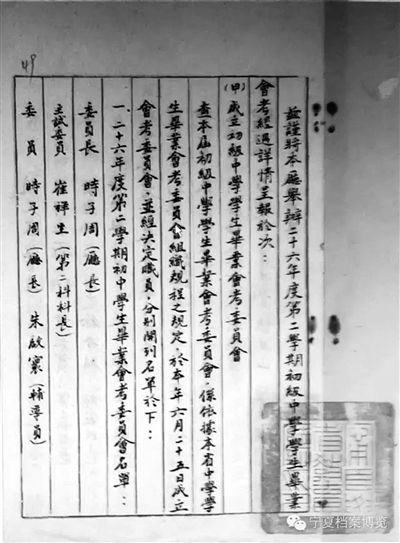 49
茲謹將本廳舉辦二十六年度第二學期初級中學學生畢業
會考經過詳情呈報於次：
(甲)成立初級中學學生畢業會考委員會
查本屆初級中學學生畢業會考委員會，係依據本省中學學
生畢業會考委員會組織規程之規定，於本年六月二十五日成立
會考委員會，並經決定職員，分別開列名單於下：
一、二十六年度第二學期初中學生畢業會考委員會名單：
委員長　時子周（廳長）
主試委員　崔祥生（第二科科長）
委　員　時子周（廳長）　朱啟寰（輔導員）
宁夏档案博览